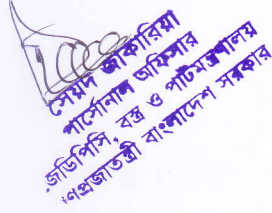 সৈয়দ জাকারিয়া
পার্সোনাল অফিসার
জডিপিসি, বস্ত্র ও পাট মন্ত্রণালয়
গণপ্রজাতন্ত্রী বাংলাদেশ সরকার